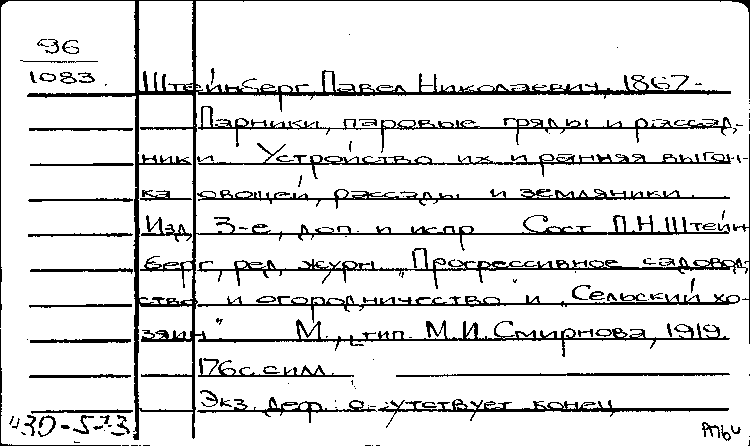 96
1083
Штейнберг, Павел Николаевич, 1867-
Парники, паровые гряды и рассад-
ники. Устройство их и ранняя выгон-
ка овощей, рассады и земляники.
Изд. 3-е, доп. и испр. Сост. П.Н.Штейн-
берг, ред. журн. „Прогрессивное садовод-
ство и огородничество" и „Сельский хо-
зяин". М., тип. М.И.Смирнова, 1919.
176с. с илл.
Экз. деф.: отсутствует конец
430-5-73